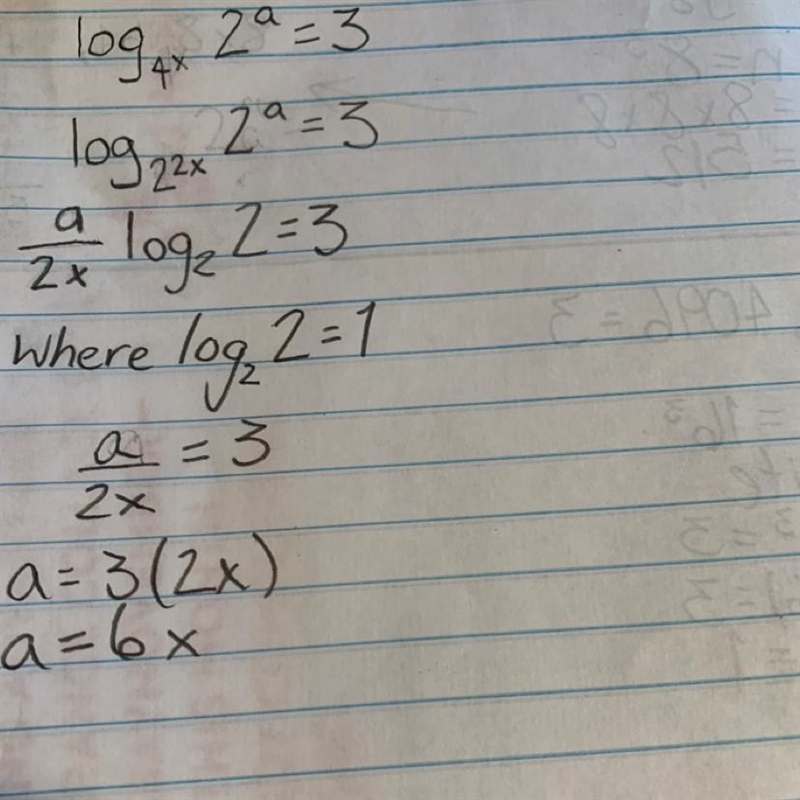 log₄ₓ 2ᵃ = 3
log₂²ˣ 2ᵃ = 3
a/2x log₂ 2 = 3
Where log₂ 2 = 1
a/2x = 3
a = 3(2x)
a = 6x